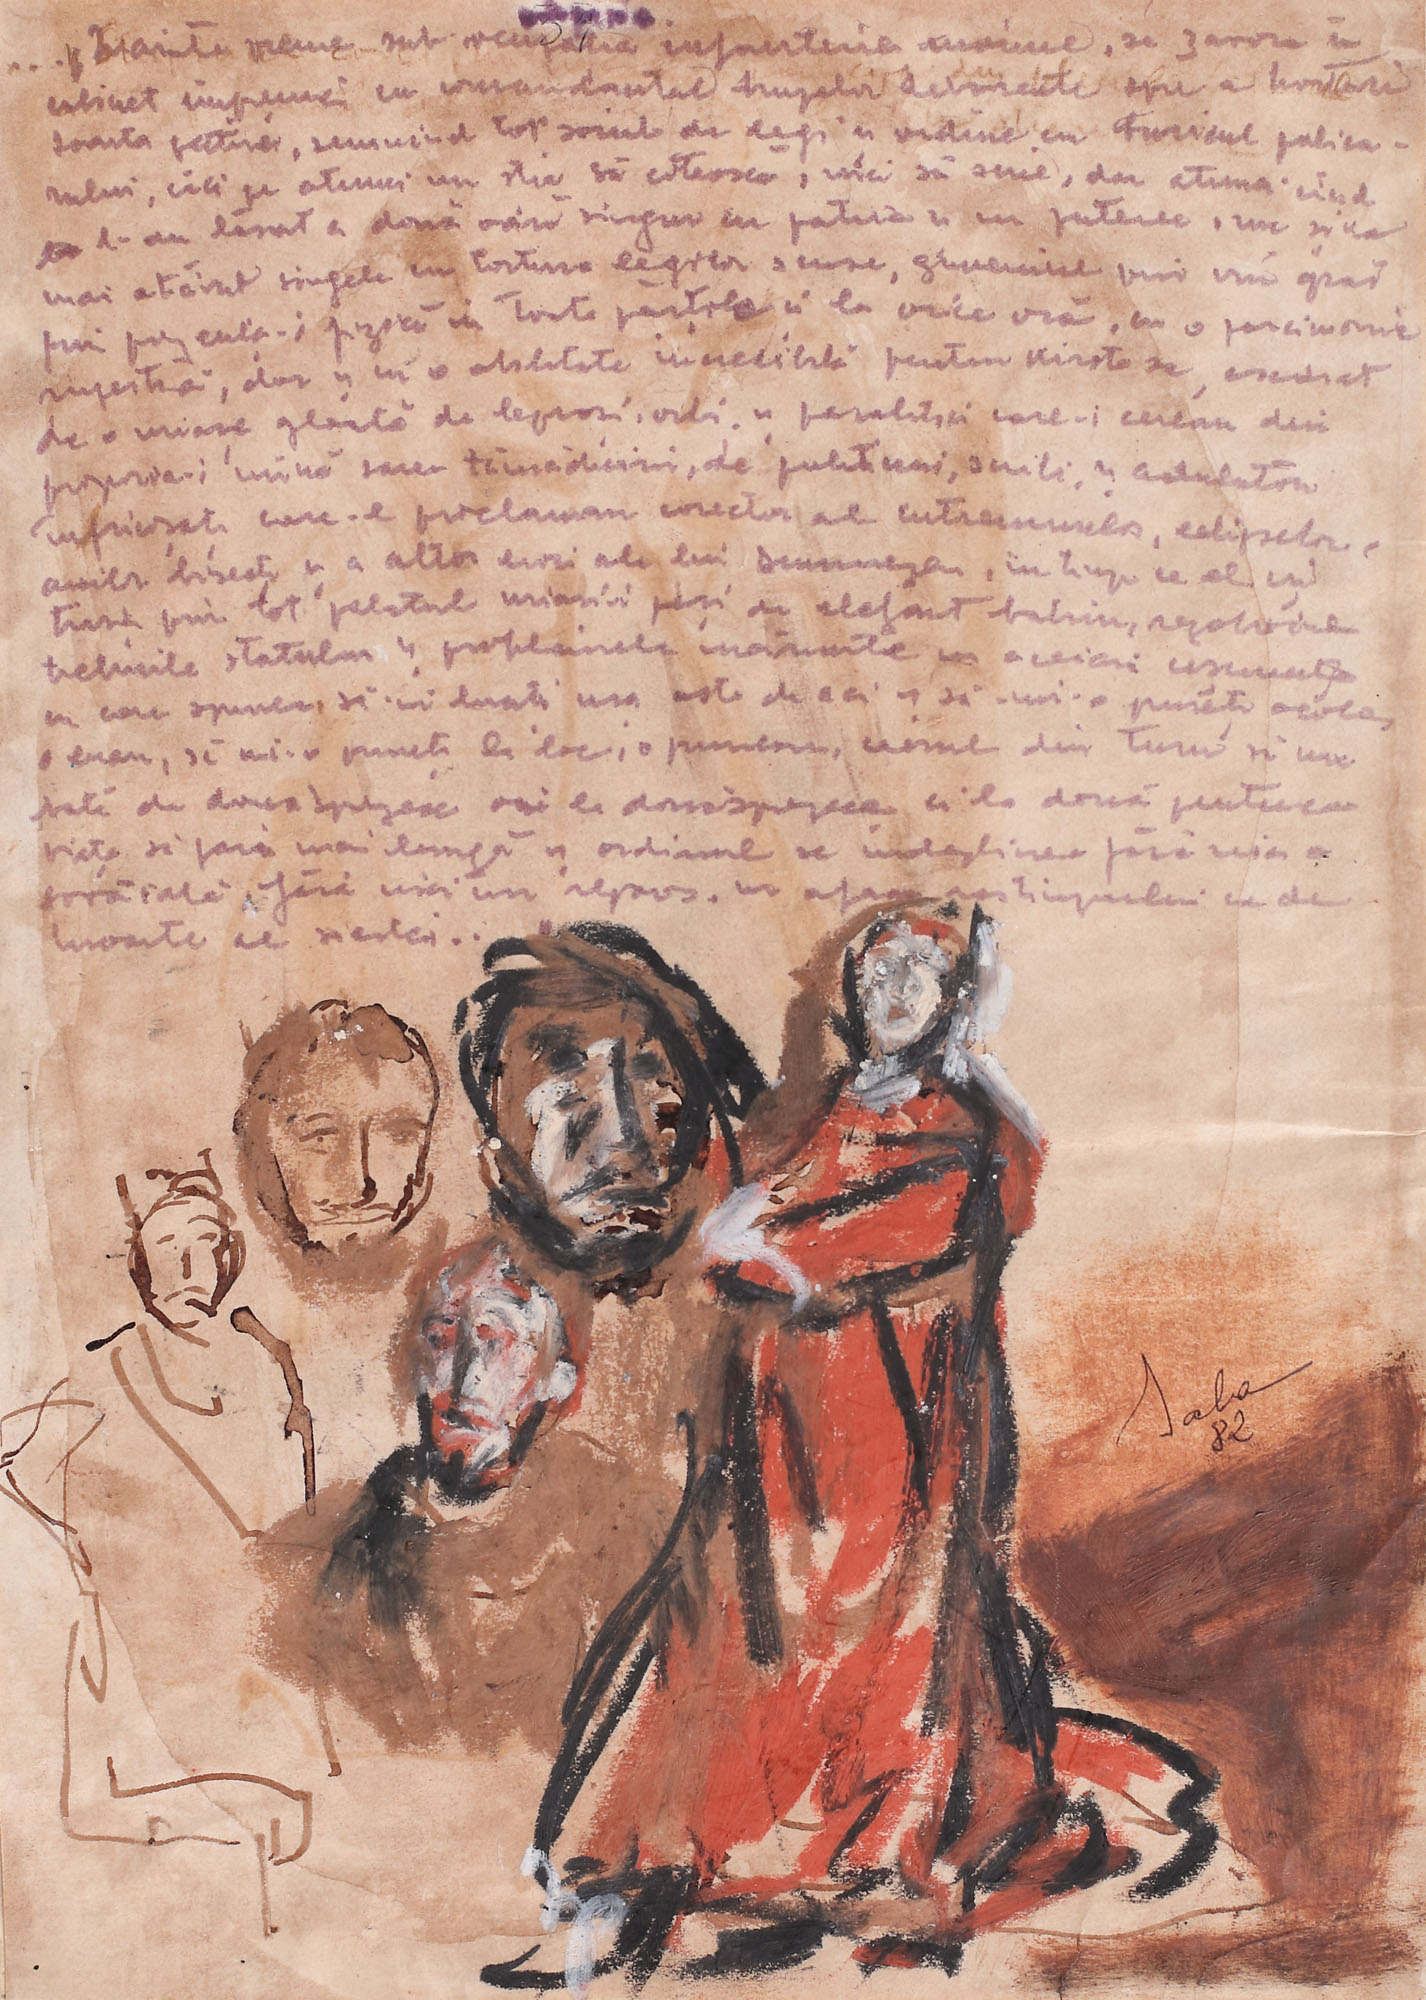 ... „Înainte vreme, sub ocupația infanteriei marine, se zavora în
cabinet împreună cu comandantul trupelor debarcate spre a hotărî
soarta patriei, semnînd tot soiul de legi și ordine cu
căci pe atunci nu știa să citească, nici să scrie, dar atunci cînd
l-au lăsat a doua oară singur cu patria și cu puterea, nu și-a
mai otrăvit sîngele cu tortura legilor scrise, guvernînd prin viu grai
prin prezența-i fizică în toate părțile și la orice oră, cu o parcimonie
rupestră, dar și cu o abilitate incredibilă pentru vîrsta sa, asediat
de o uriașe gloată de leproși, orbi și paralitici care-i cereau din
propria-i mînă sarea tămăduirii, de politicieni, și adulatori
care-l proclamau corector al cutremurelor, eclipselor,
anilor bisecți și a altor erori ale lui Dumnezeu, în timp ce el își
tîra prin tot palatul uriașii pași de elefant bătrîn, rezolvînd
treburile statului și problemele mărunte cu aceiași
cu care spunea, să-mi luați ușa asta de aci și să mi-o puneți acolo,
o luau, să mi-o puneți la loc, o puneau, ceasul din turn să nu
bată de douăsprezece ori la douăsprezece ci la două pentru ca
viața să pară mai lungă și ordinul se îndeplinea fără nici o
șovăială, fără nici un repaos, cu
siestei..."
Saba
82